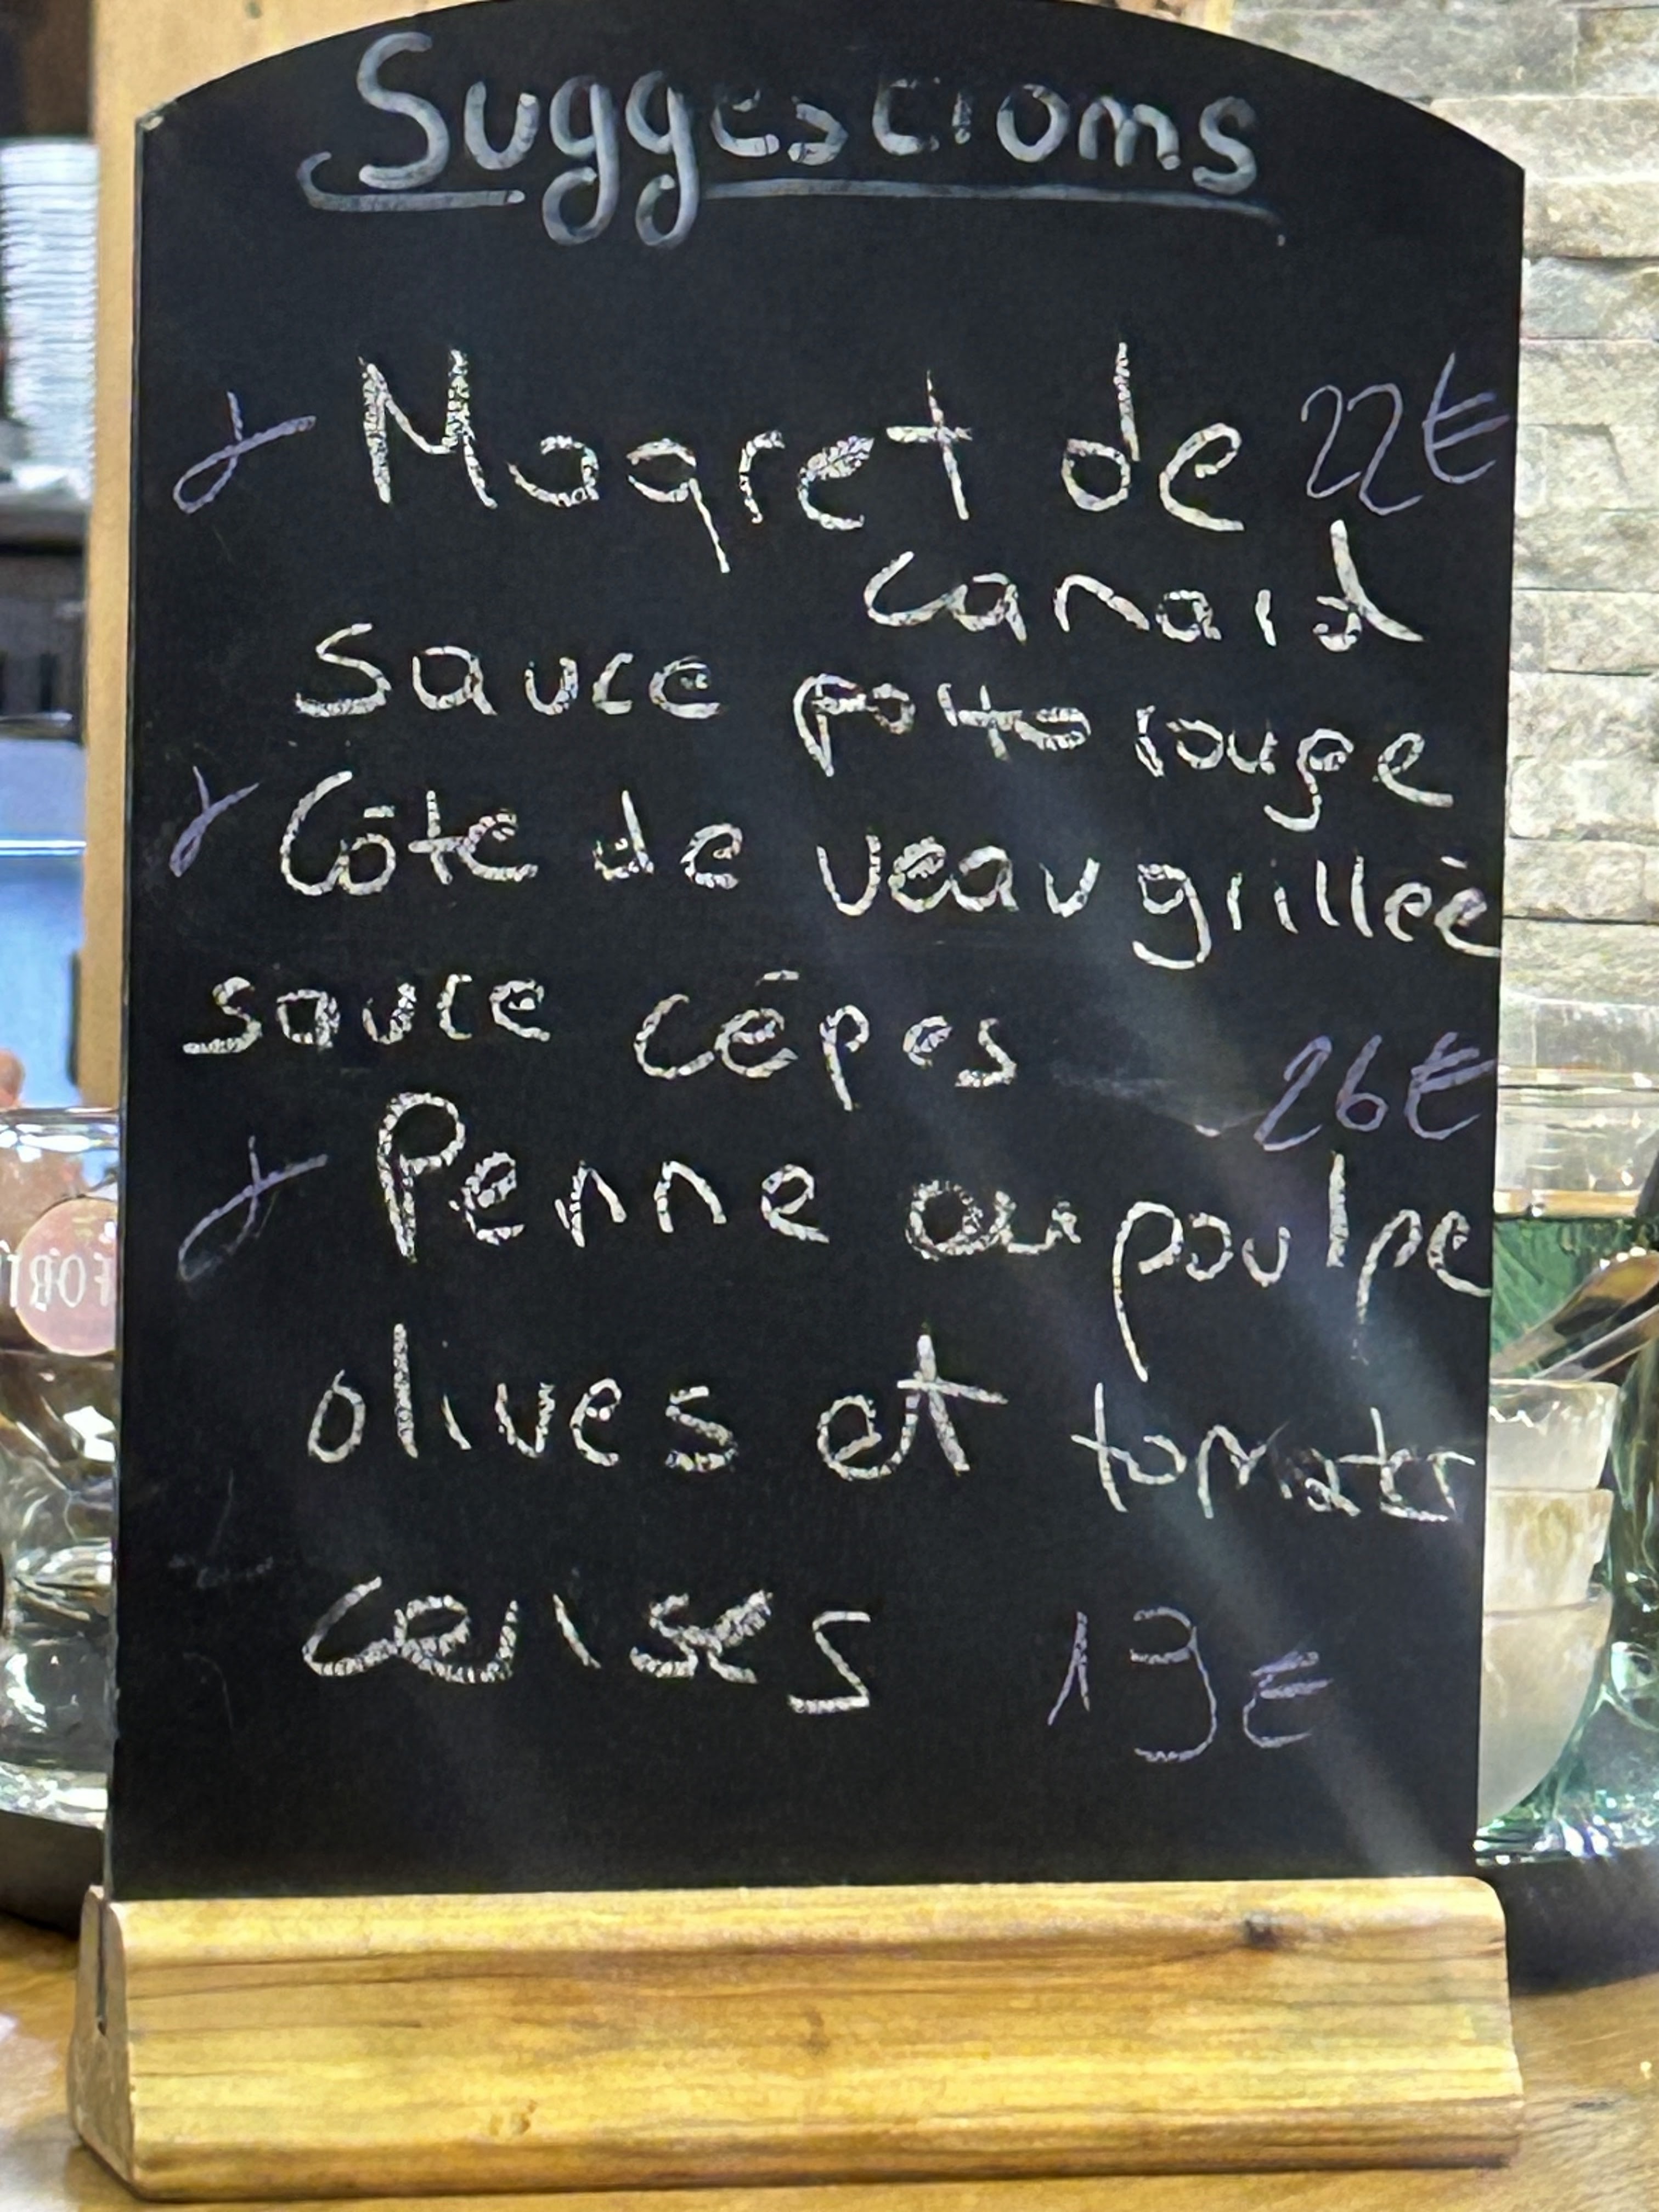 Suggestions
Magret de 22€
canard
sauce porto rouge
Côte de veau grillée
sauce cépes
26€
Penne au poulpe
olives et tomates
cerises 19€